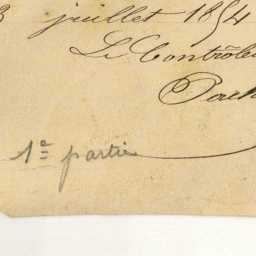 3 juillet 1854
Le Contrôle
1e partie